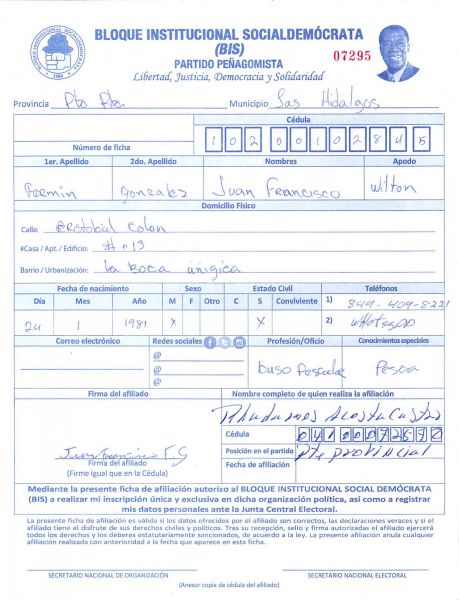 BLOQUE INSTITUCIONAL SOCIALDEMÓCRATA
(BIS)
07295
PARTIDO PEÑAGOMISTA
Libertad, Justicia, Democracia y Solidaridad
Provincia Pto Pta Municipio Los Hidalgos
Cédula
Número de ficha 10200102845
1er. Apellido 2do. Apellido Nombres Apodo
Fermin Gonzalez Juan Francisco Wilton
Domicilio Físico
Calle: Cristobal Colon
#Casa / Apt. / Edificio: # n 13
Barrio / Urbanización: La Boca
Fecha de nacimiento Sexo Estado Civil Teléfonos
Día Mes Año M F Otro C S Conviviente 1) 849-409-8221
24 1 1981 X X 2) Whatsapp
Correo electrónico Redes sociales Profesión/Oficio Conocimientos especiales
@
@ Buso Pescador Pesca
@
Firma del afiliado Nombre completo de quien realiza la afiliación
Rhadames Acosta Castro
Cédula 04100072570
Juan Francisco F.G Posición en el partido pte provincial
Firma del afiliado
(Firma igual que en la Cédula) Fecha de afiliación
Mediante la presente ficha de afiliación autorizo al BLOQUE INSTITUCIONAL SOCIAL DEMÓCRATA
(BIS) a realizar mi inscripción única y exclusiva en dicha organización política, así como a registrar
mis datos personales ante la Junta Central Electoral.
La presente ficha de afiliación es válida si los datos ofrecidos por el afiliado son correctos, las declaraciones veraces y si el
afiliado tiene el disfrute de sus derechos civiles y políticos. Tras su recepción, sello y firma autorizadas el afiliado ejercerá
todos los derechos y los deberes estatutariamente sancionados, de acuerdo a la ley. La presente afiliación anula cualquier
afiliación realizada con anterioridad a la fecha que aparece en esta ficha.
SECRETARIO NACIONAL DE ORGANIZACIÓN SECRETARIO NACIONAL ELECTORAL
(Anexar copia de cédula del afiliado)